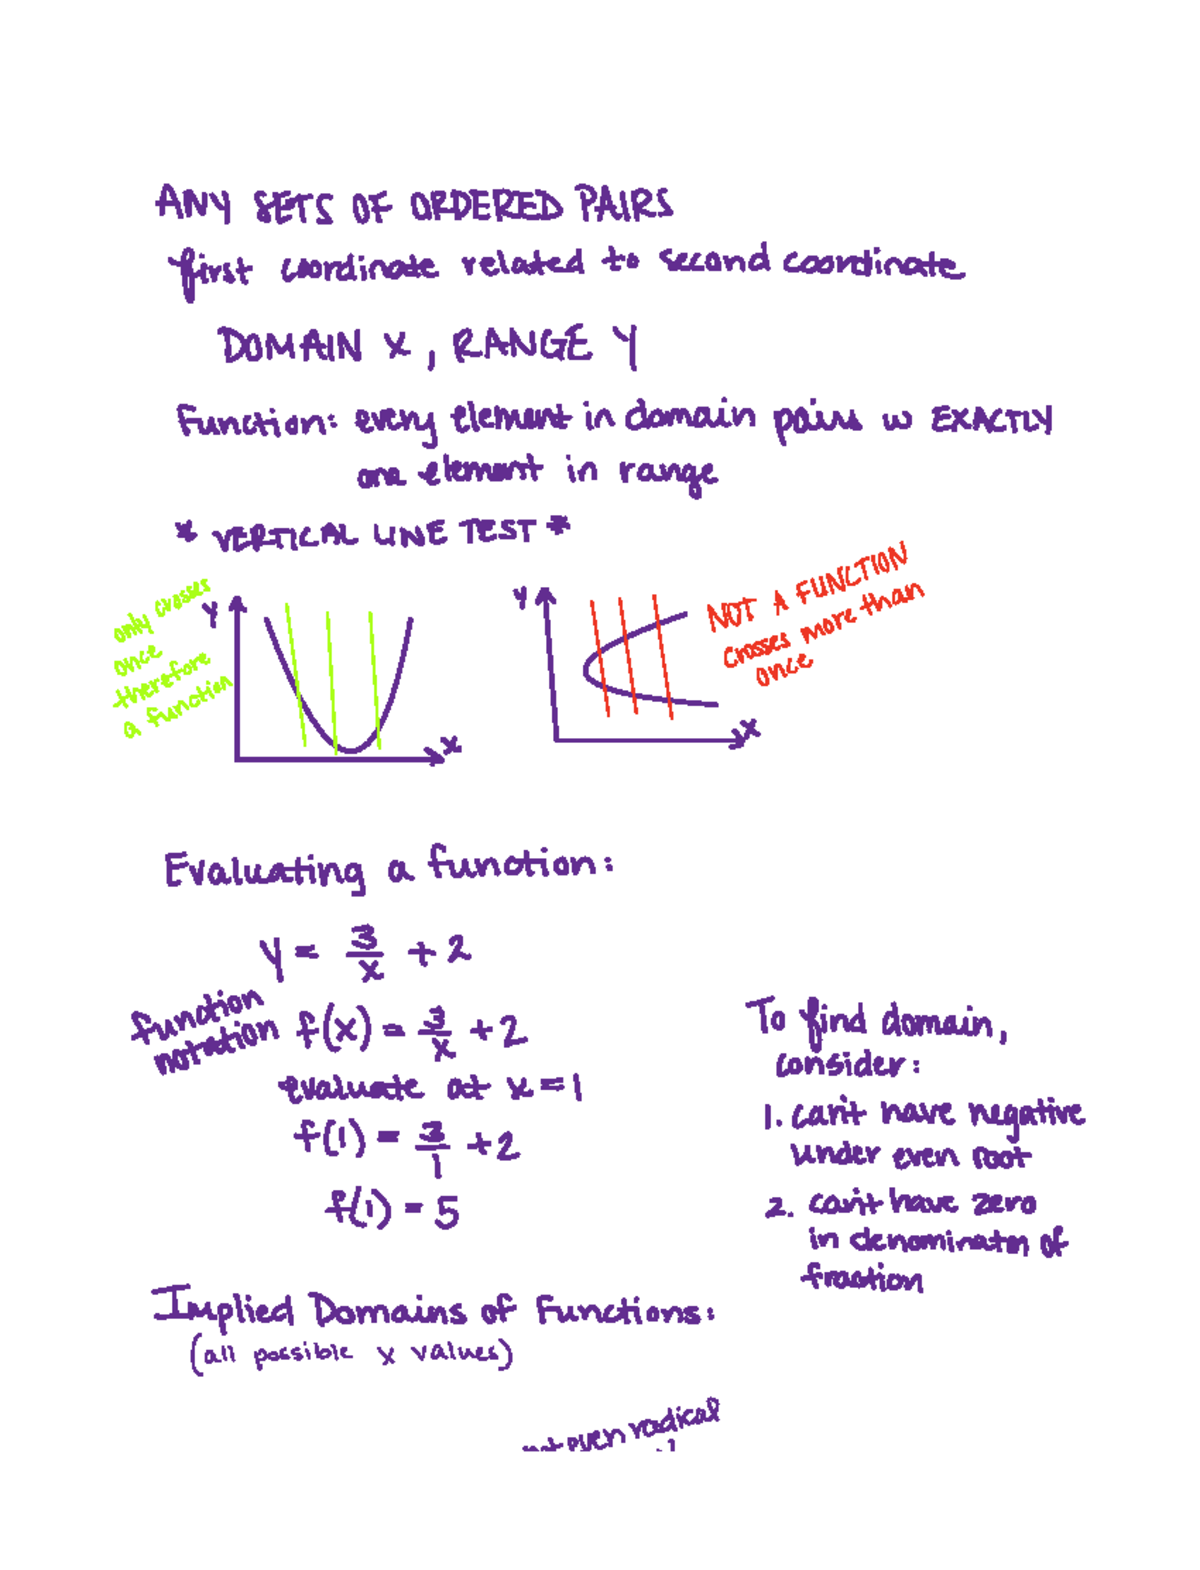 ANY SETS OF ORDERED PAIRS
first coordinate related to second coordinate
DOMAIN X, RANGE Y
Function: every element in domain pairs w EXACTLY
one element in range
* VERTICAL LINE TEST *
only crosses
once
therefore
a function
Y
X
Y
X
NOT A FUNCTION
crosses more than
once
Evaluating a function:
y = 3/x + 2
function
notation
f(x) = 3/x + 2
evaluate at x = 1
f(1) = 3/1 + 2
f(1) = 5
To find domain,
consider:
1. can't have negative
under even root
2. can't have zero
in denominator of
fraction
Implied Domains of Functions:
(all possible x values)
even radical